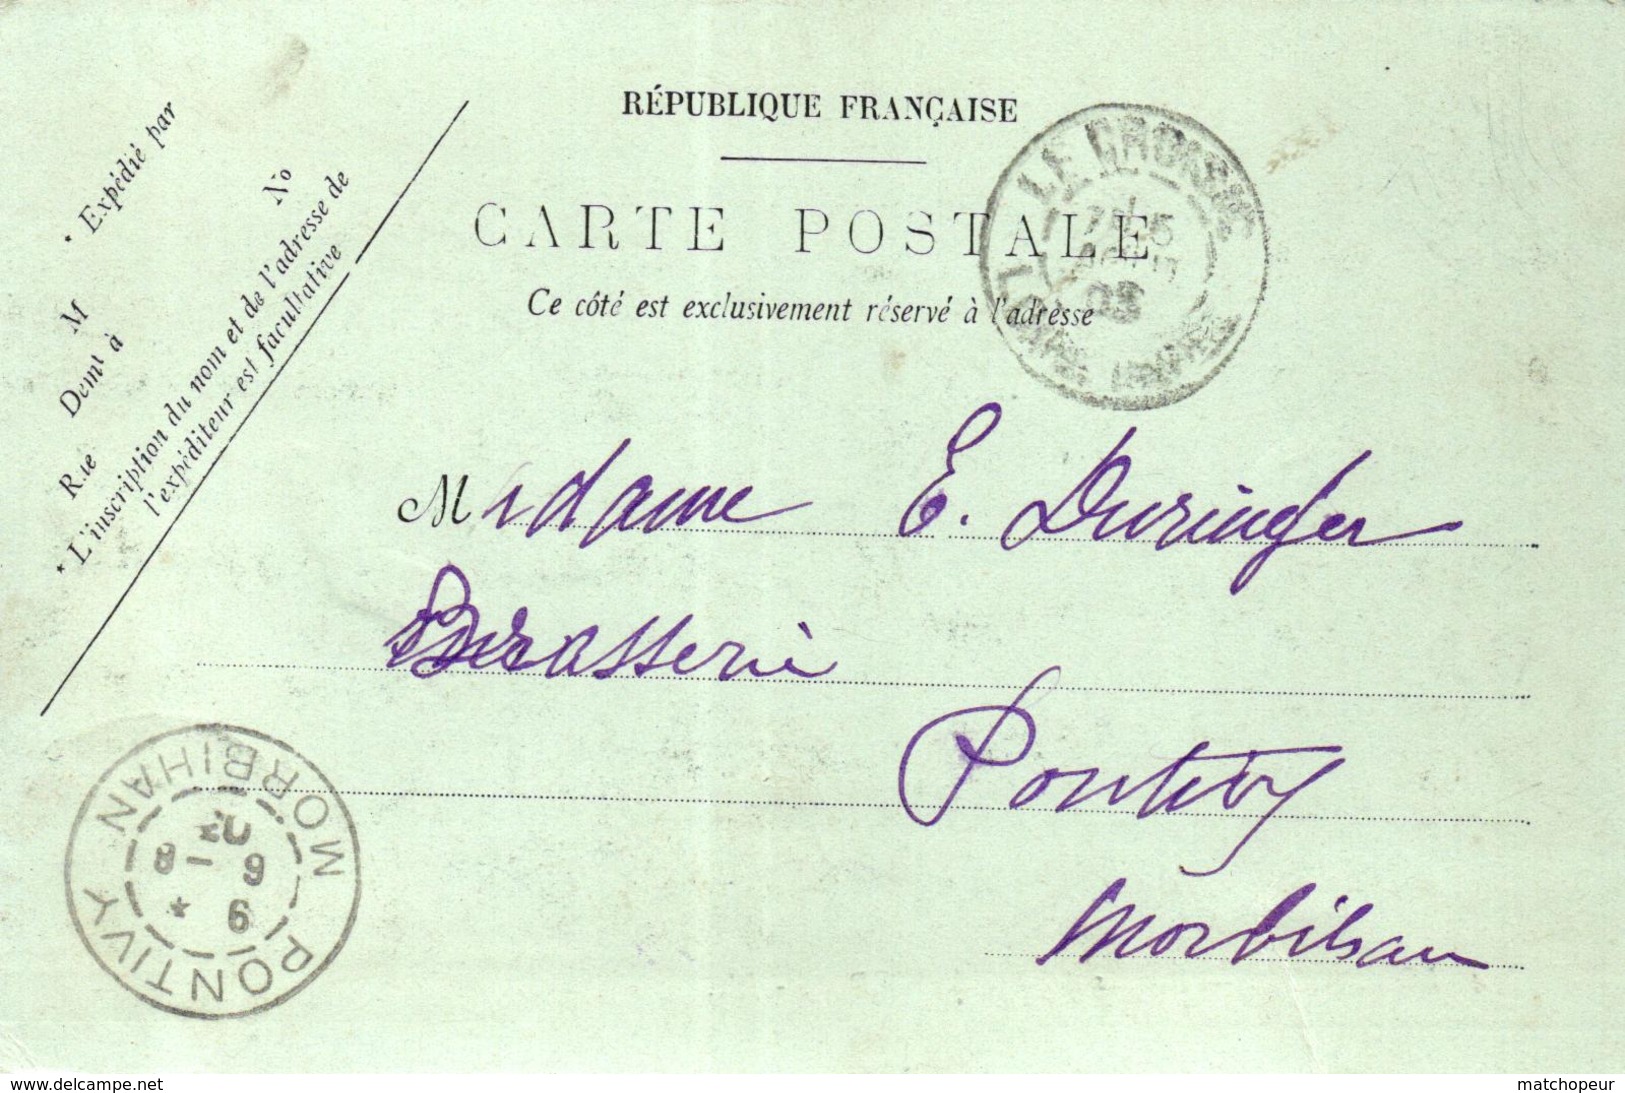 RÉPUBLIQUE FRANÇAISE
CARTE POSTALE
Ce côté est exclusivement réservé à l'adresse
* Expédié par
M
Demt à
Rue
No
* L'inscription du nom et de l'adresse de
l'expéditeur est facultative
LE CROISIC
5
03
LOIRE
Madame E. Duringer
Brasserie
Pontivy
Morbihan
PONTIVY MORBIHAN
8 - 9
6
www.delcampe.net
matchopeur